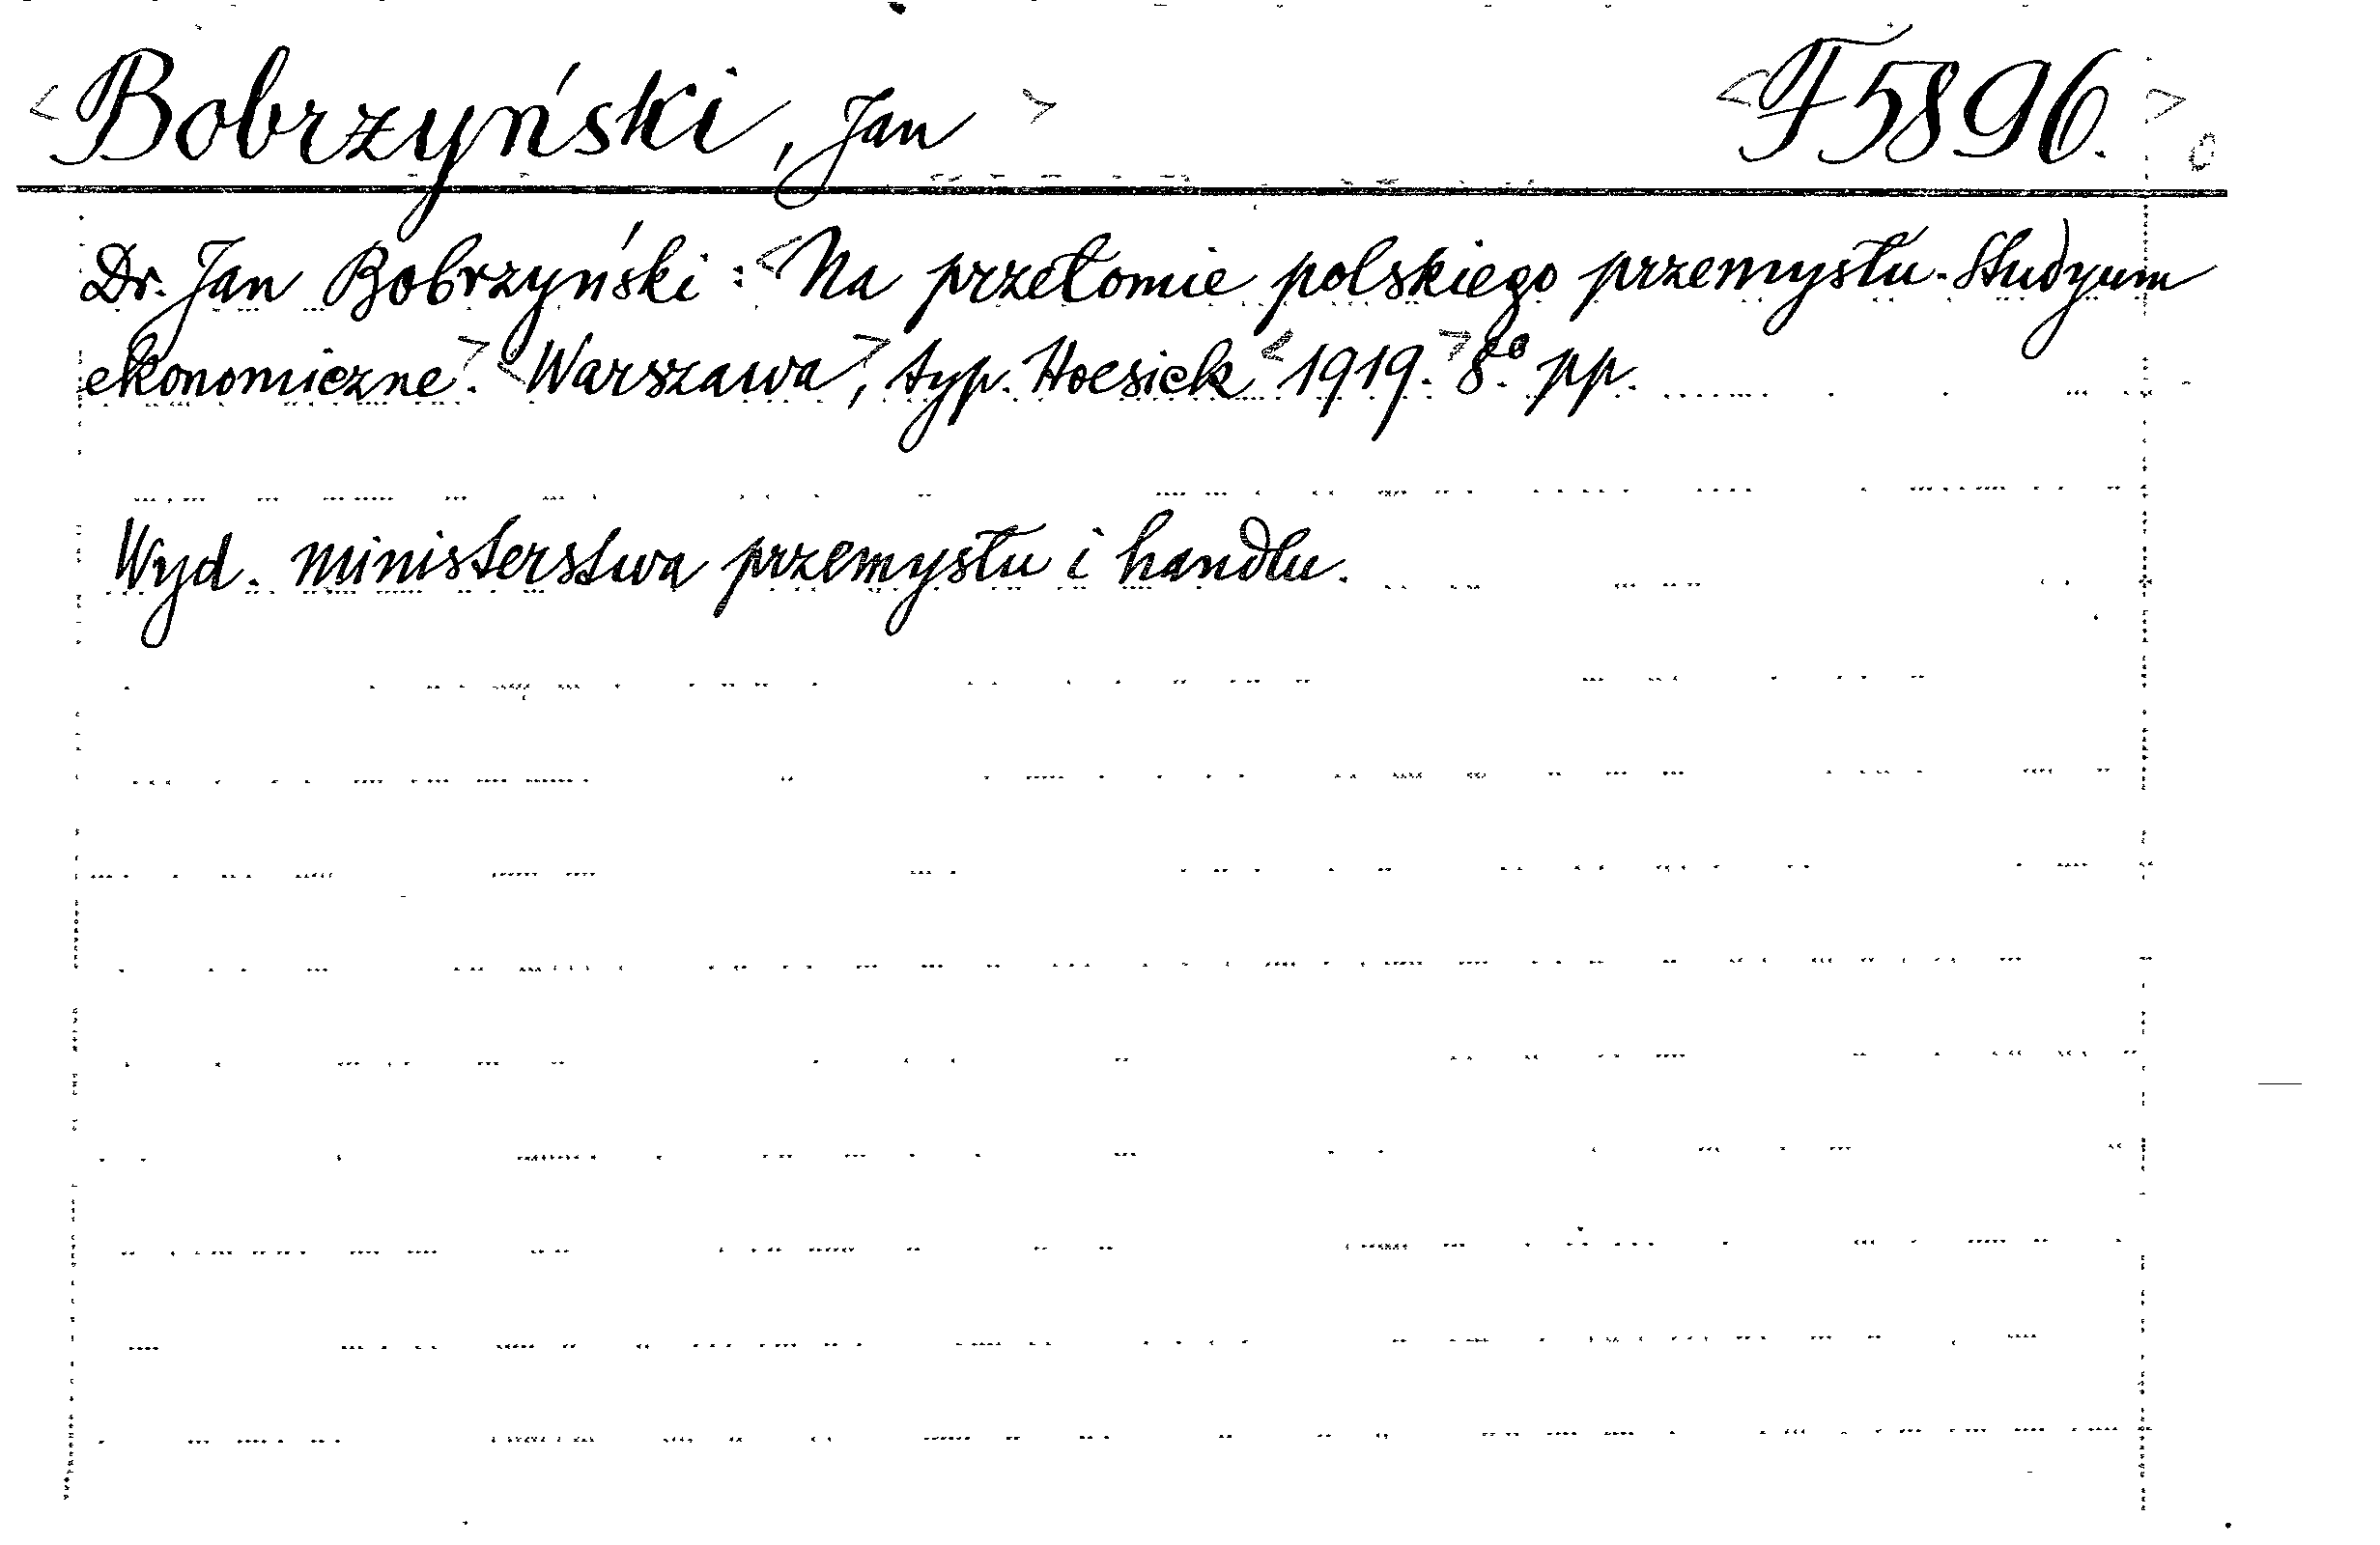 <Bobrzyński, Jan> <F5896.>
Dr. Jan Bobrzyński: <Na przełomie polskiego przemysłu. Studyum
ekonomiczne>. <Warszawa>, typ. Hoesick <1919.> 8° pp.
Wyd. ministerstwa przemysłu i handlu.